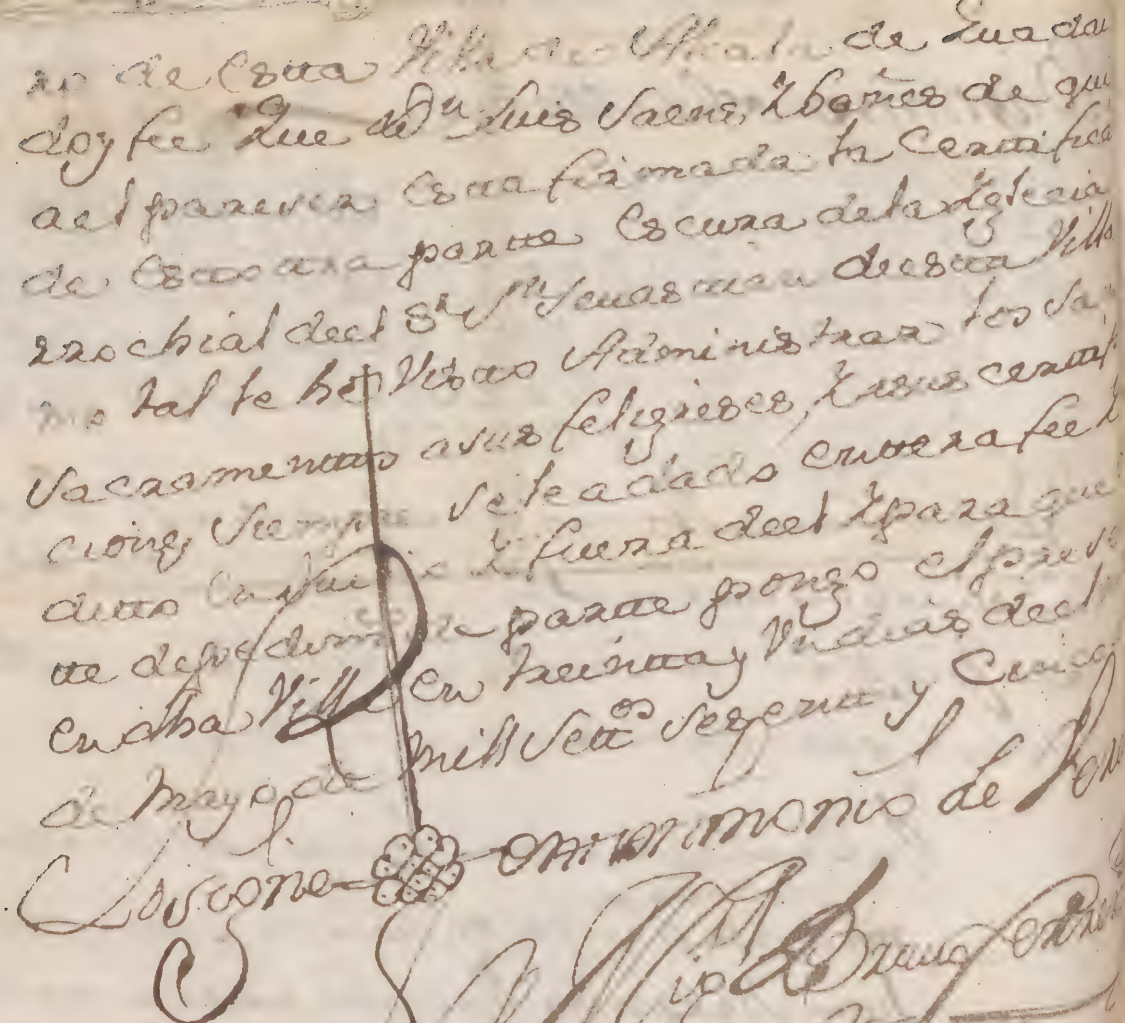 no de Estta Villa de Alcala de Guadai
doy fee Que de Dn Luis Saens Ybañes de qui
ael pareser Estta firmada la Certtifica
de Esttotra partte Es cura de la Yglecia
rrochial deel Sr Sn Sevastian de estta Villa
mo tal le he Visto Administrar los Sa
Sacramenttos a sus feligreses, Y a sus certtifi
ciones Siempre se le a dado enttera fee Y
ditto en Y fuera deel Y para que
tte de pedimto de partte pongo el prese
en dha Villa en treintta y Un dias deel
de Mayo de mill Settos sesentta y Cinco
Lo signe en testimonio de
Bruno